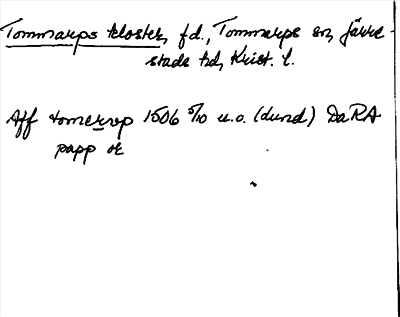 Tommarps kloster, f.d., Tommarps sn, Järre-
stads hd, Krist. l.
Aff tomerop 1506 5/10 u.o. (dund) DaRA
papp or